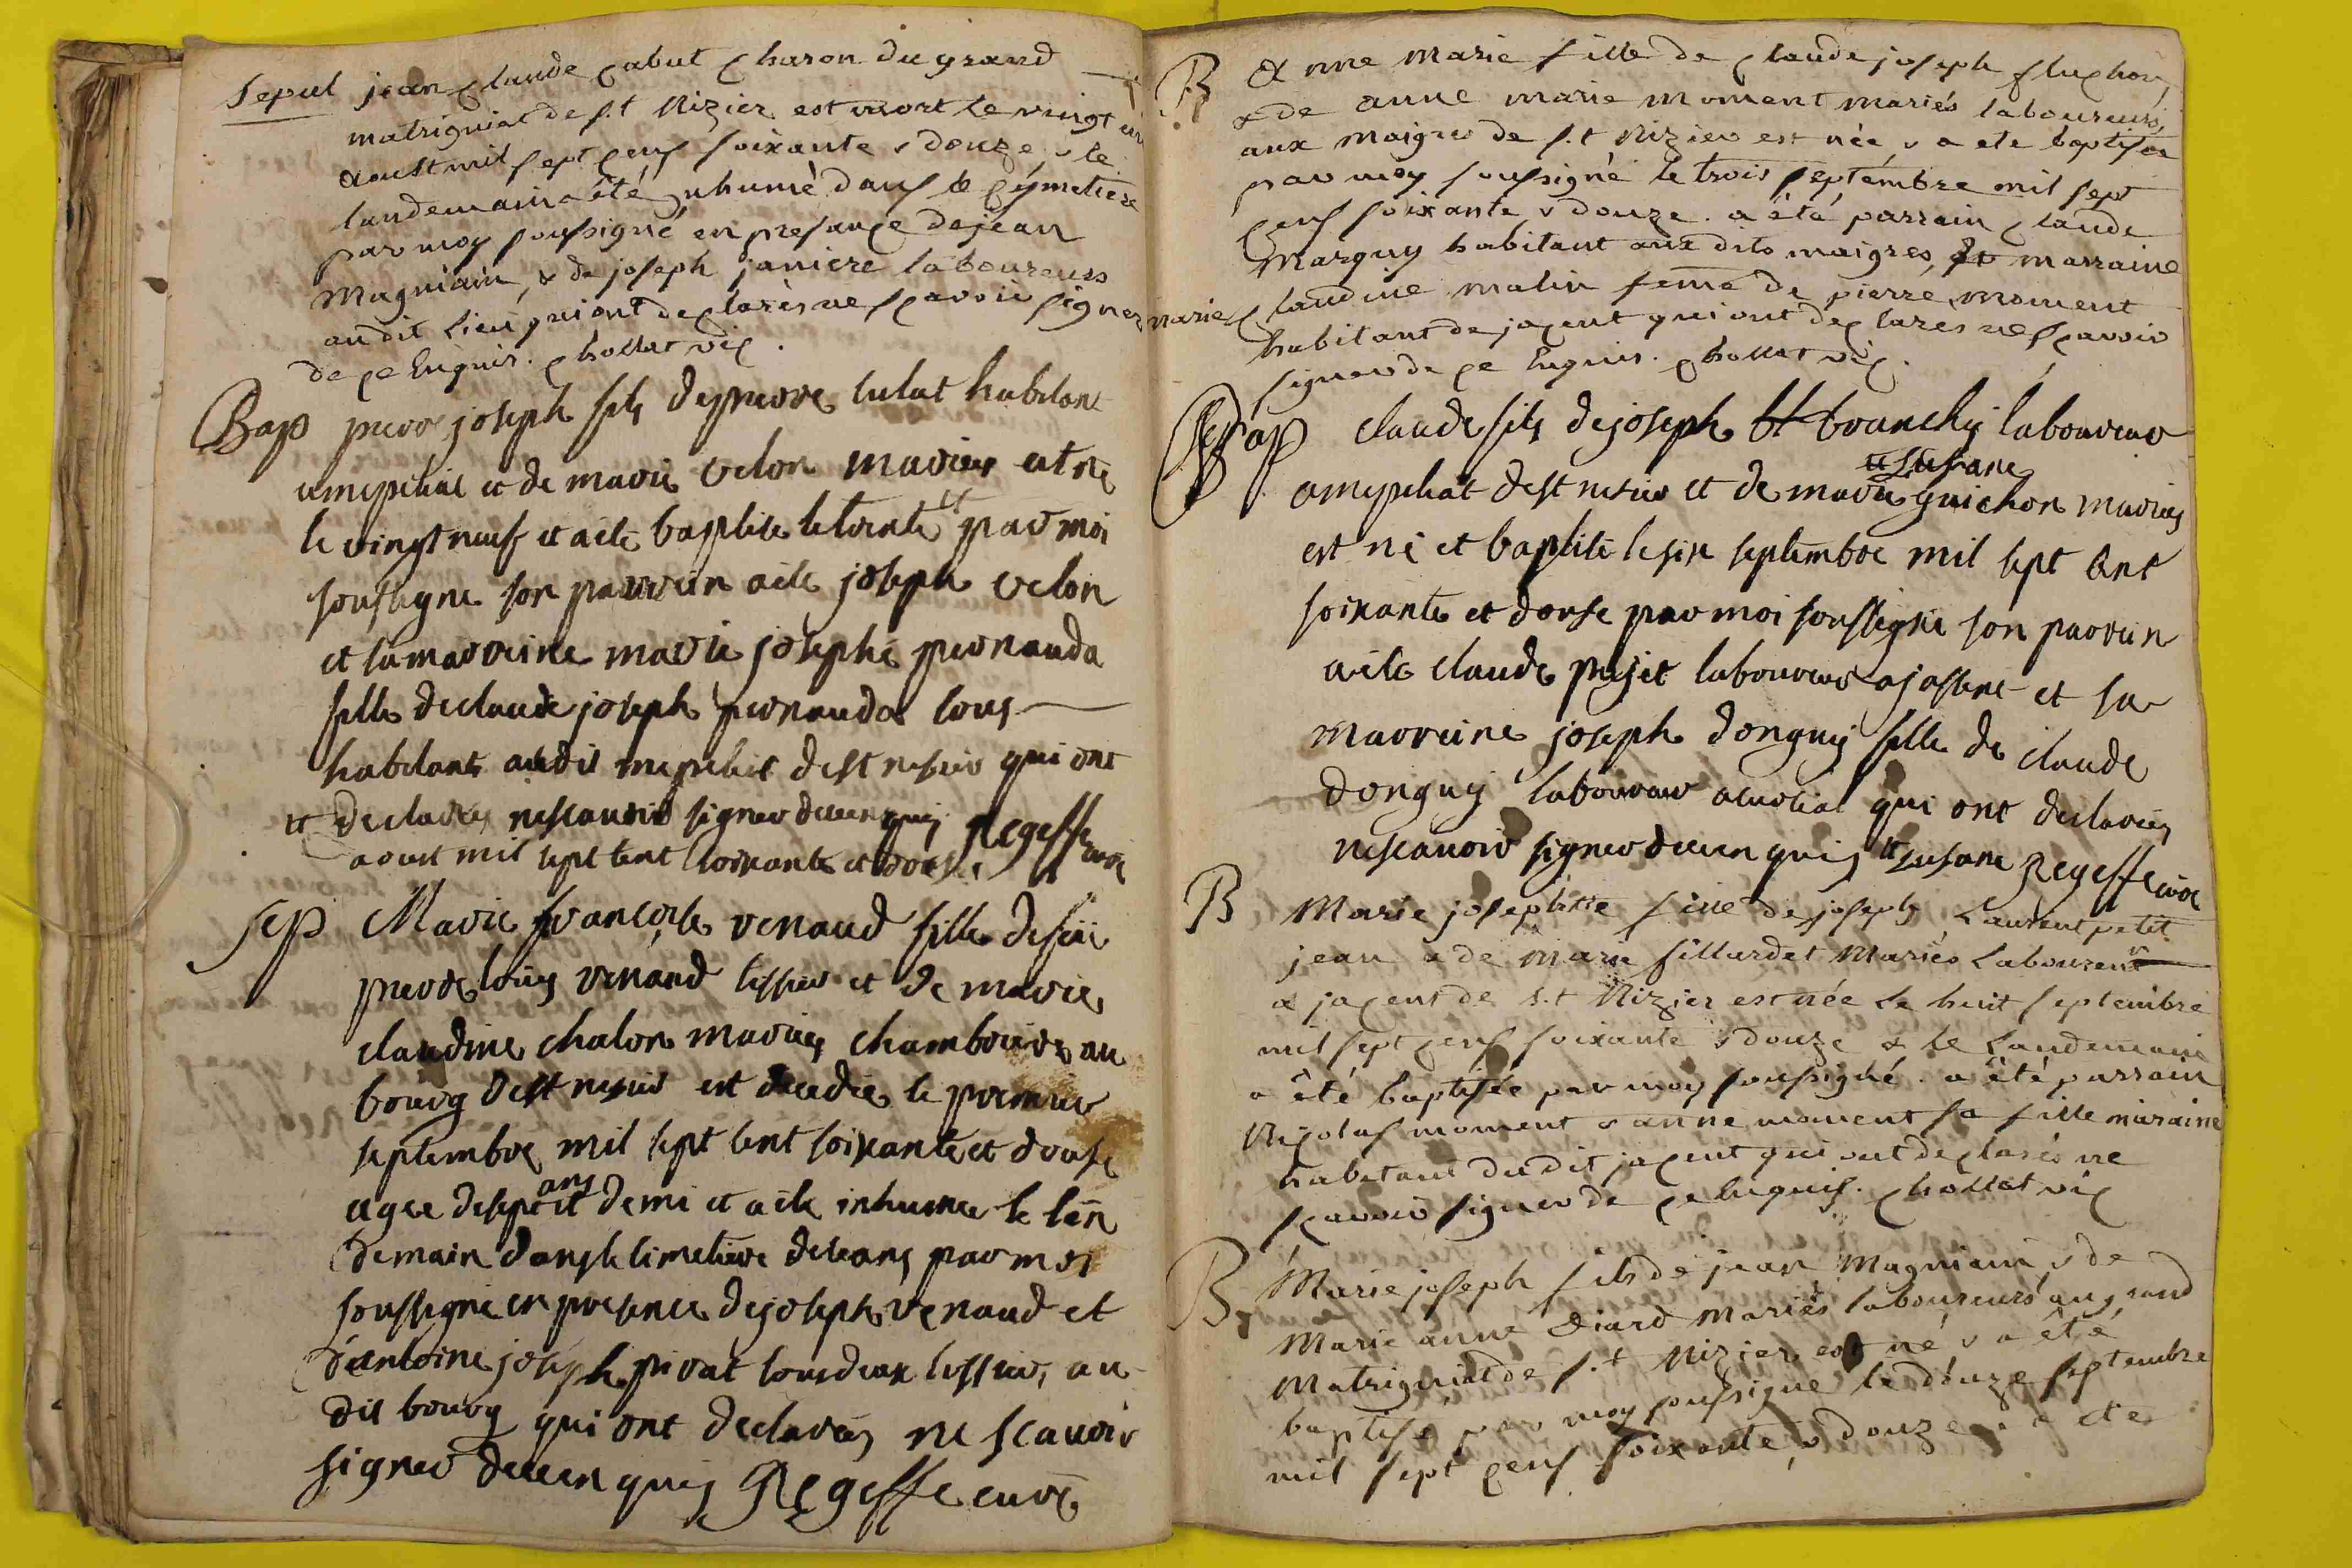 Sepul jean claude cabut charon du grand
matrigniat de s.t Nizier est mort le vingt un
aoust mil sept cens soixante & douze, & le
landemain a été inhumé dans le cymetiere
par moy soussigné en presance de jean
Magniain, & de joseph janiere laboureurs
au dit lieu qui ont declarés ne scavoir signer
de ce Enquis. chollat vic.
Bap pierre joseph fils de pierre lulat habitant
et de marie velon maries est né
le vingt neuf et a ete baptise le trente et par moi
soussigne son parrein a ete joseph velon
et sa marreine marie josephe pernauda
fille de claude joseph pernauda tous
habitants audit d st nesier qui ont
et declarés ne scauoir signer de ce enquis Regeffe curé
aoust mil sept cent soixante et douse
sep Marie francoise renaud fille de feu
pierre louis renaud tissier et de marie
claudine chalon maries chambrier au
bourg de st nesier est decedée le premier
septembre mil sept cent soixante et douse
agee de sept ans et demi et a ete inhumee le len
demain dans le cimetiere de ceans par moi
soussigné en presence de joseph renaud et
d'antoine joseph pivat tous deux tissier, au
dit bourg qui ont declarés ne scauoir
signer de ce enquis Regeffe curé
B Anne Marie fille de claude joseph fluchon,
& de anne marie moment mariés laboureurs,
aux maigres de s.t Nizier est née, & a ete baptisée
par moy soussigné le trois septembre mil sept
cens soixante & douze. a été parrain claude
Marguy habitant aux dits maigres, et marraine
marie claudine malin feme de pierre moment
habitant de jacent qui ont declarés ne scavoir
signer de ce Enquis. chollat vic.
Bap claude fils de joseph branchy laboureur
et susane
a d st nesier et de marie guichon maries
est né et baptisé le six septembre mil sept cent
soixante et douse par moi soussigné son parrein
a ete claude pujet laboureur a jassent et sa
marreine joseph donguy fille de claude
donguy laboureur a curtiat qui ont declarés
ne scauoir signer de ce enquis et susane Regeffe curé
B Marie josephtte fille de joseph Laurent petit
jean & de marie fillardet Mariés Laboureur
a jacent de s.t Nizier est née Le huit septembre
mil sept cens soixante & douze & le Landemain
a été baptisée par moy soussigné. a été parrain
Nicolas moment & anne moment sa fille maraine
habitant du dit jacent qui ont declarés ne
scavoir signer de ce Enquis. chollat vic
B Marie joseph fils de jean Magniain, & de
Marie anne diard Mariés laboureurs au grand
Matrigniat de s.t Nizier est né & a été
baptisé par moy soussigné le douze septembre
mil sept cens soixante, & douze. a été